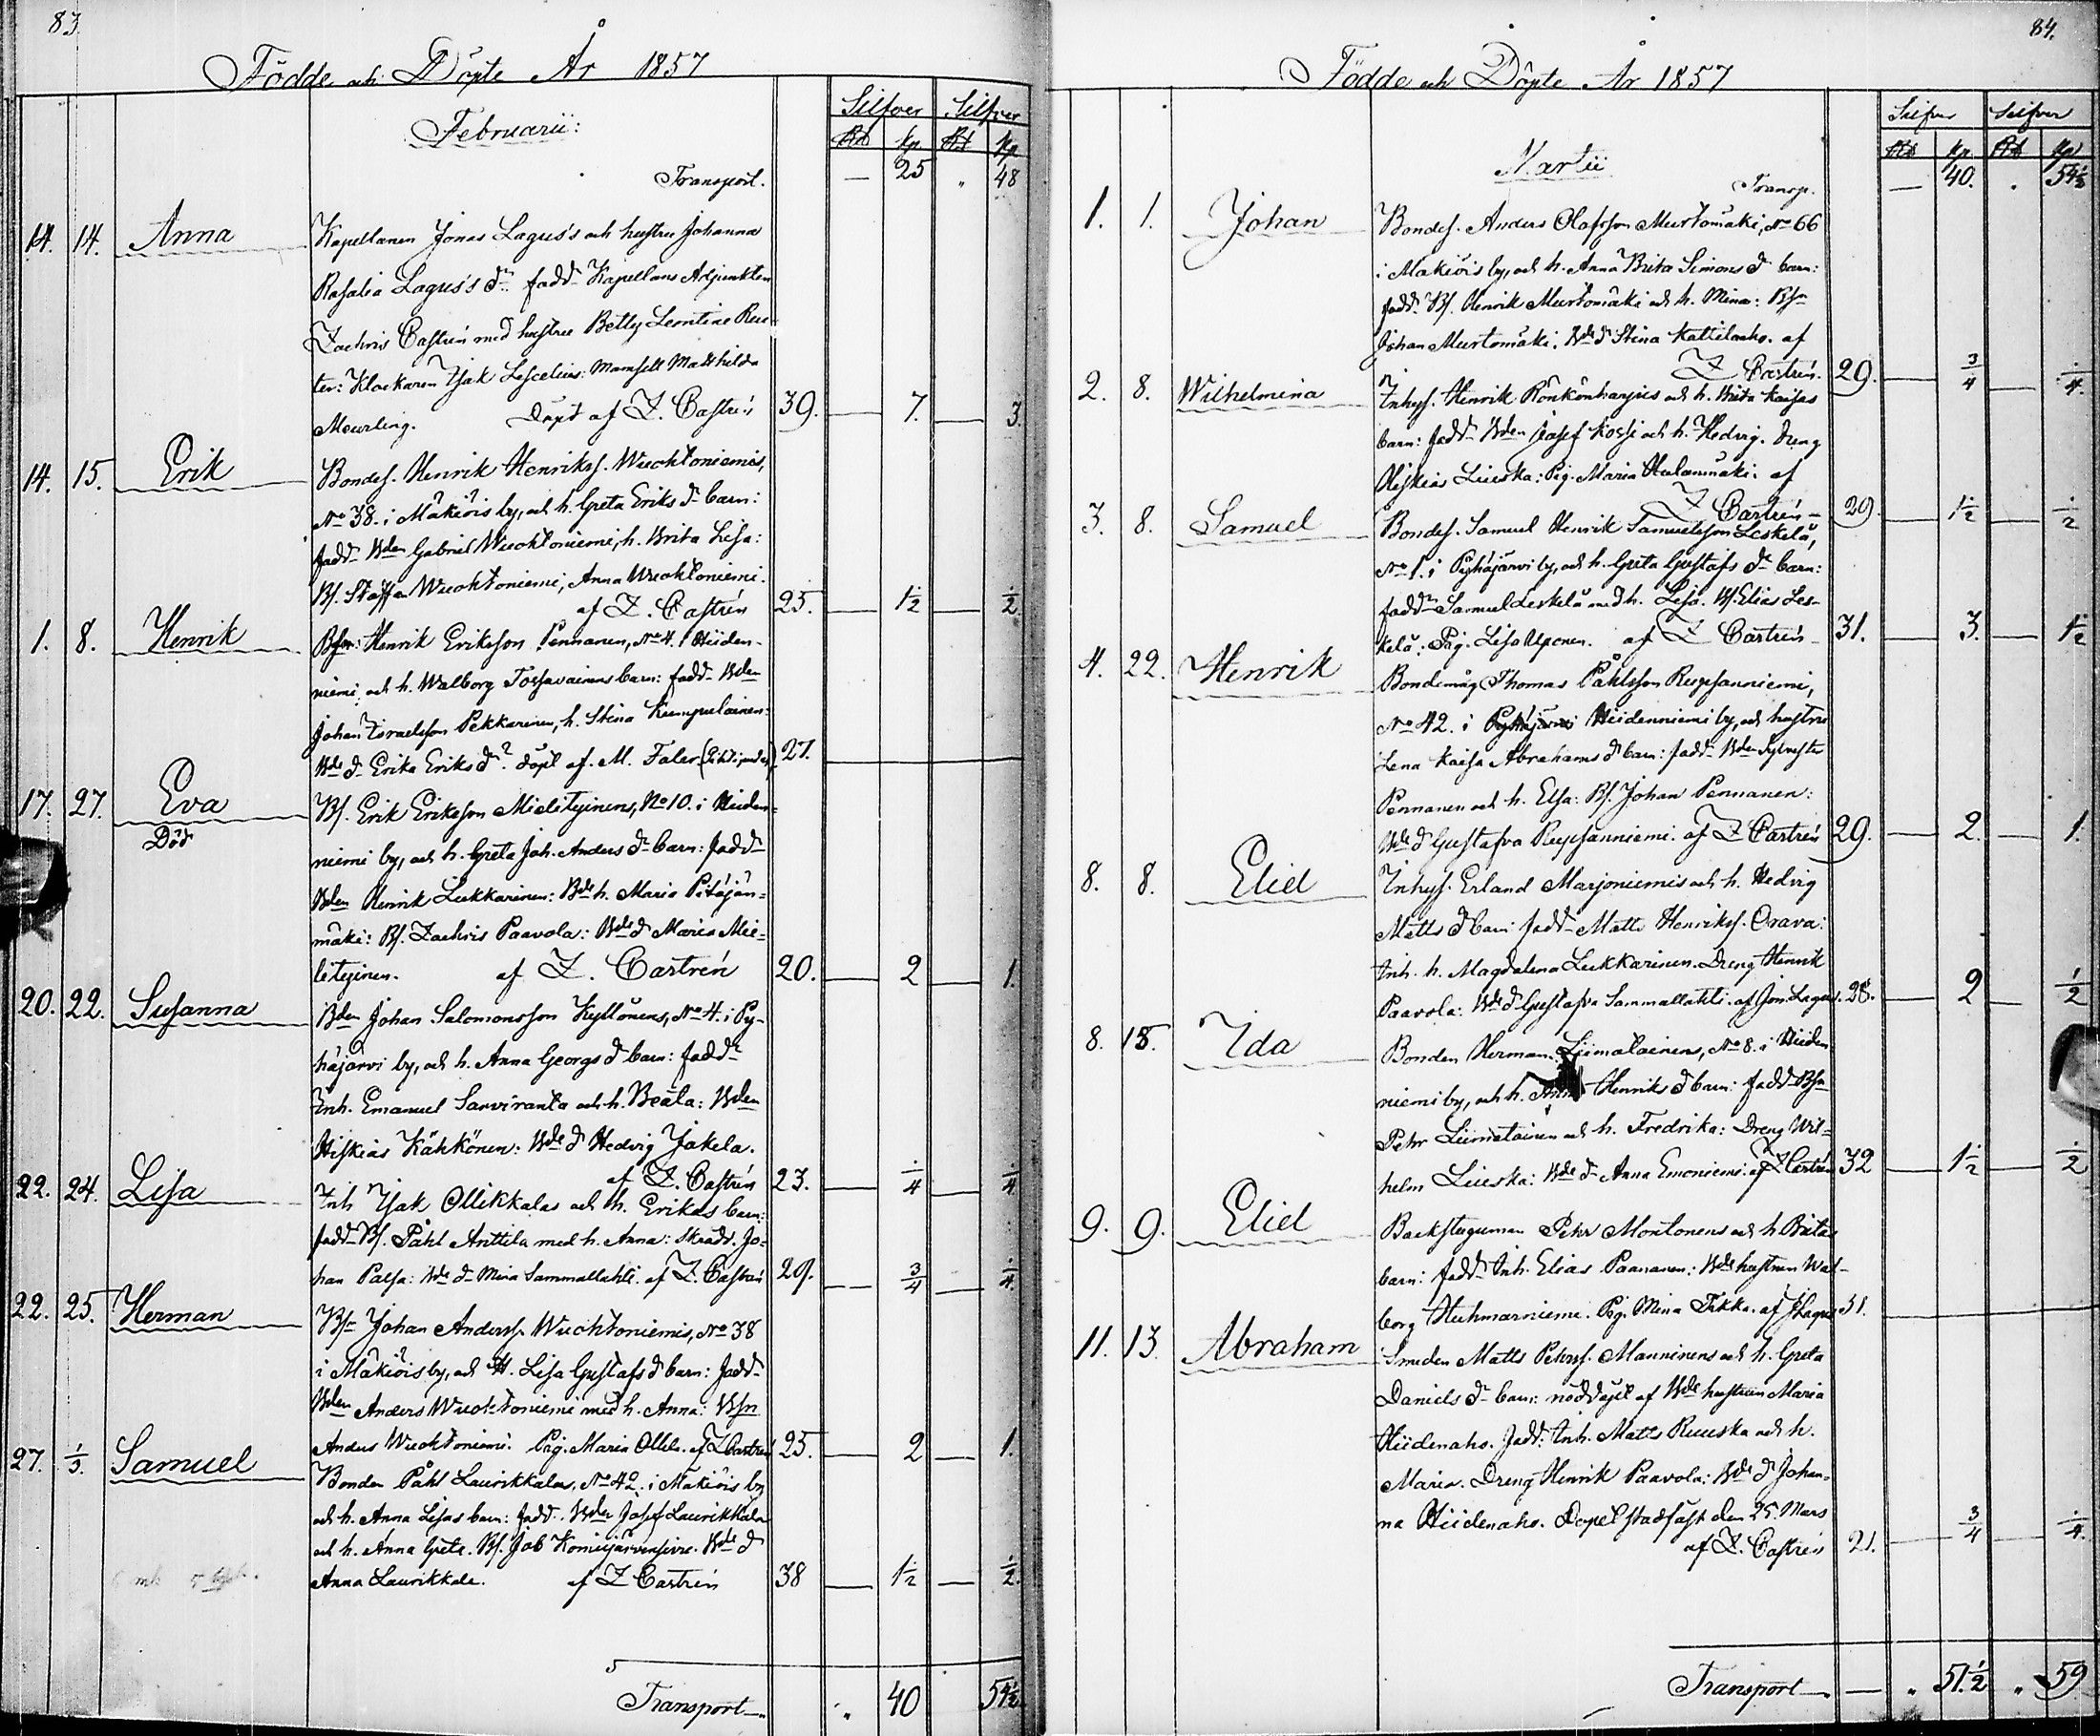 83
Födde och Döpte År 1857
Februarii:
Silfver Silfver
Rb kp Rb kp
Transport. — 25 " 48
14. 14. Anna Kapellanen Jonas Lagus's och hustru Johanna
Rosalia Lagus's dr. fadd. Kapellans Adjunkten
Zachris Castrén med hustru Betty Leontine Reu-
ter: Klockaren Isak Lescelius: Mamsell Mathilda
Meurling. Döpt af Z. Castrén 39. — 7. — 3.
14. 15. Erik Bondes. Henrik Henrikss. Wuohtoniemis,
No 38. i Mäkiöis by, och h. Greta Eriks dr barn:
fadd. Bden Gabriel Wuohtoniemi, h. Brita Lisa:
Bs. Staffan Wuohtoniemi, Anna Wuohtoniemi.
af Z. Castrén 25. — 1½ — ½
1. 8. Henrik Bsn: Henrik Eriksson Pennanen, No 4. i Hiiden-
niemi, och h. Walborg Tossavainens barn: fadd. Bden
Johan Israelsson Pekkarinen, h. Stina Kumpulainen:
Bde d. Erika Eriks dr. döpt af M. Faler 27.
17. 27. Eva Bs. Erik Eriksson Mielityinens, No 10. i Hiiden-
Död niemi by, och h. Greta Joh. Anders dr barn: fadd.
Bden Henrik Lukkarinen: Bde h. Maria Pitäjän-
mäki: Bs. Zachris Paavola: Bde d. Maria Mie-
lityinen. af Z. Castrén 20. — 2 — 1.
20. 22. Susanna Bden Johan Salomonsson Kyllönens, No 4. i Py-
häjärvi by, och h. Anna Georgs dr barn: fadd.
Inh. Emanuel Sarviranta och h. Beata: Bden
Hiskias Kähkönen: Bde d. Hedvig Jakela.
af Z. Castrén 23. — ¼ — ¼
22. 24. Lisa Inh Isak Ollikkalas och h. Erikas barn:
fadd. Bs. Påhl Anttila med h. Anna: skradd. Jo-
han Palsa: Bde d. Mina Sammallahti. af Z. Castrén 29. — ¾ — ¼
22. 25. Herman Bsn Johan Anderss. Wuohtoniemis, No 38
i Mäkiöis by, och H. Lisa Gustafs d barn: fadd.
Bden Anders Wuohtoniemi med h. Anna: Bsn
Anders Wuohtoniemi. Pig. Maria Ollila. af Z Castrén 25. — 2 — 1.
27. 1/3. Samuel Bonden Påhl Laurikkalas, No 42. i Mäkiöis by
och h. Anna Lisas barn: fadd. Bden Josef Laurikkala
och h. Anna Greta. Bs. Job Bde d
Anna Laurikkala. af Z Castrén 38 — 1½ — ½
Transport — " 40 54½
84.
Födde och Döpte År 1857
Martii
Silfver Silfver
Rb kp Rb kp
Transp. — 40. " 54½
1. 1. Johan Bondes. Anders Olofsson Murtomäki, No 66
i Mäkiöis by, och h. Anna Brita Simons dr barn:
fadd. Bs. Henrik Murtomäki och h. Mina: Bsn
Johan Murtomäki. Bde d Stina Kattilaaho. af
Z Castrén. 29. — ¾ — ¼
2. 8. Wilhelmina Inhys. Henrik Rönkönharjus och h. Brita Kaisas
barn: fadd. Bden Josef Koski och h. Hedvig. dreng
Hiskias Liuska: Pig. Maria Hulanmäki. af
Z Castrén — 29. — 1½ — ½
3. 8. Samuel Bondes. Samuel Henrik Samuelsson Leskelä,
No 1. i Pyhäjärvi by, och h. Greta Gustafs dr barn:
fadd. Samuel Leskelä med h. Lisa. Bs. Elias Les-
kelä: Pig. Lisa Ulponen. af Z Castrén 31. — 3. — 1½
4. 22. Henrik Bondemåg Thomas Påhlsson Rupsanniemi,
No 42. i Pyhäjärvi Hiidenniemi by, och hustru
Lena Kaisa Abrahams d barn: fadd. Bden Sylvester
Pennanen och h. Elsa: Bs. Johan Pennanen:
Bde d Gustafva Rupsanniemi. af Z Castrén 29. — 2. — 1.
8. 8. Eliel Inhys. Erland Marjoniemis och h. Hedvig
Matts d barn: fadd. Matts Henrikss. Orava:
Inh. h. Magdalena Lukkarinen. Dreng Henrik
Paavola: Bde d Gustafva Sammallahti. af Jon. Lagus. 28. — 2 — ½
8. 15. Ida Bonden Herman Liimatainens, No 8. i Hiiden-
niemi by, och h. Anna Henriks d barn: fadd. Bsn
Pehr Liimatainen och h. Fredrika: Dreng Wil-
helm Liuska: Bde d. Anna Emoniemi: af Z Castrén 32 — 1½ — ½
9. 9. Eliel Backstuguman Pehr Montonens och h Britas
barn: fadd. Inh. Elias Paananen: Bde hustrun Wal-
borg Huhmarniemi. Pig. Mina Tikka. af J Lagus 31.
11. 13. Abraham Smeden Matts Pehrss. Manninens och h. Greta
Daniels dr barn: nöddöpt af Bde hustrun Maria
Hiidenaho. fadd. Inh. Matts Ruuska och h.
Maria. Dreng Henrik Paavola: Bde d Johan-
na Hiidenaho. Dopet stadfäst den 25. Mars
af Z. Castrén 21. — ¾ — ¼
Transport — — " 51.½ " 59